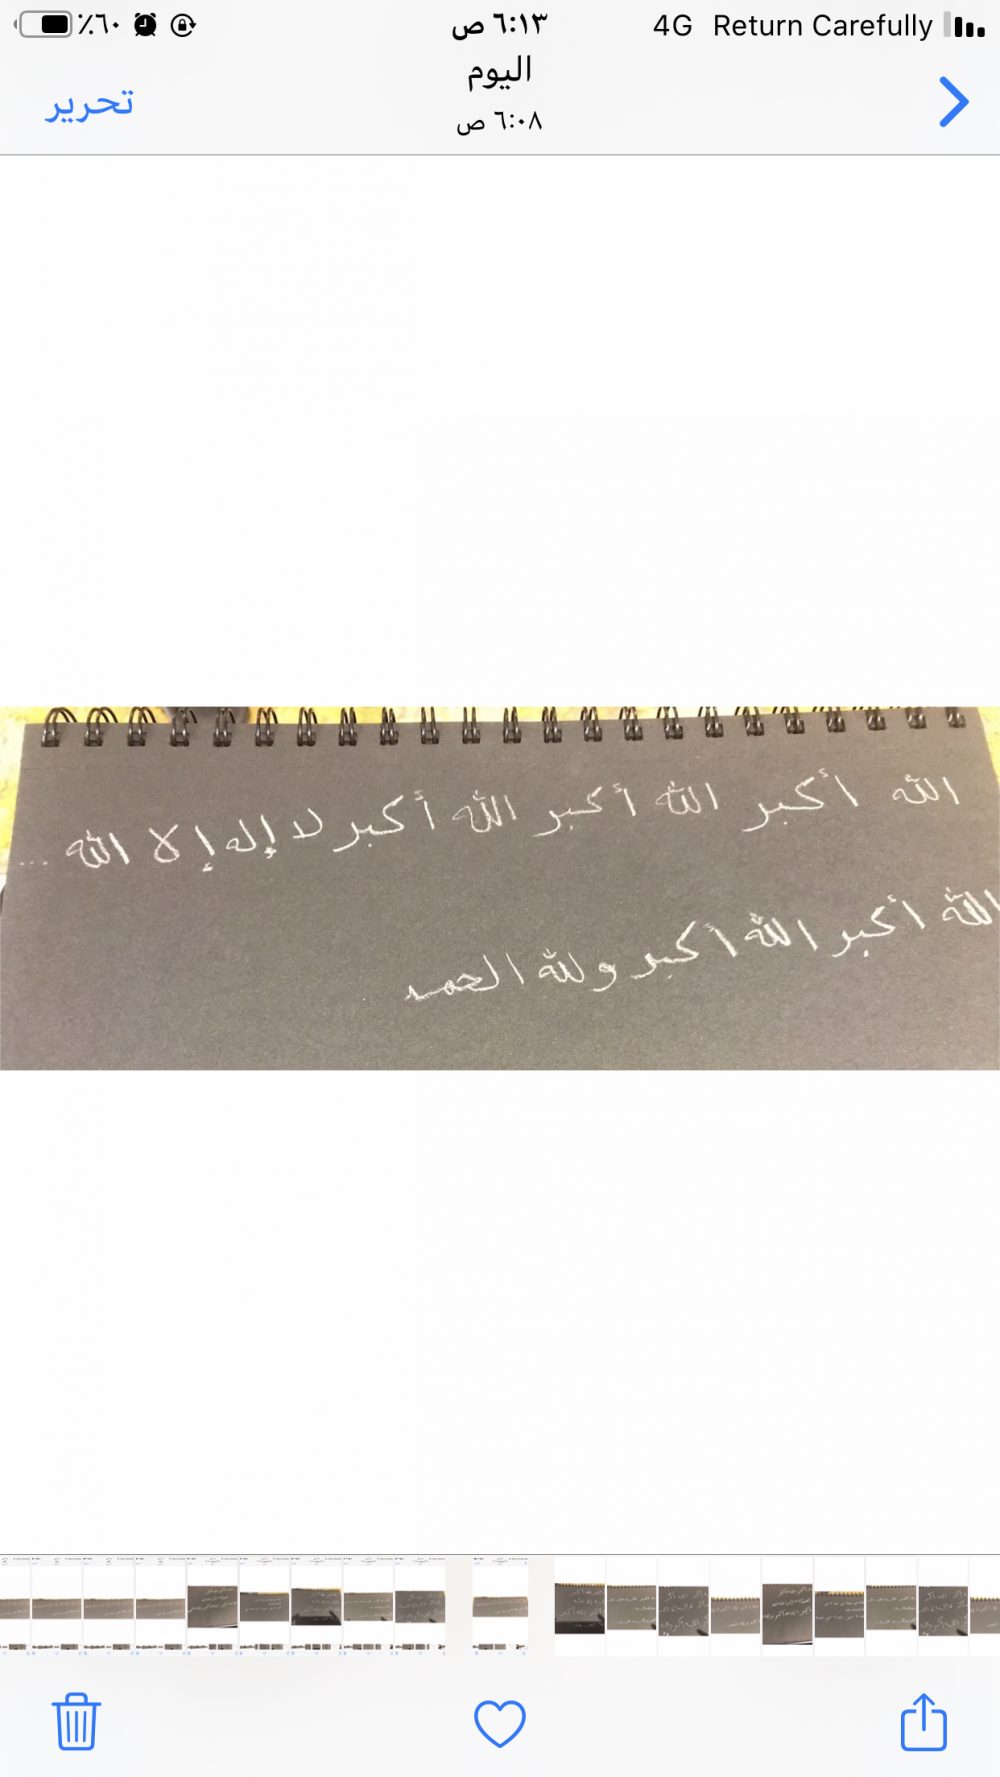 ٪٦٠ ٦:١٣ ص 4G Return Carefully
اليوم
تحرير
٦:٠٨ ص
الله أكبر الله أكبر الله أكبر لا إله إلا الله ...
الله أكبر الله أكبر ولله الحمد